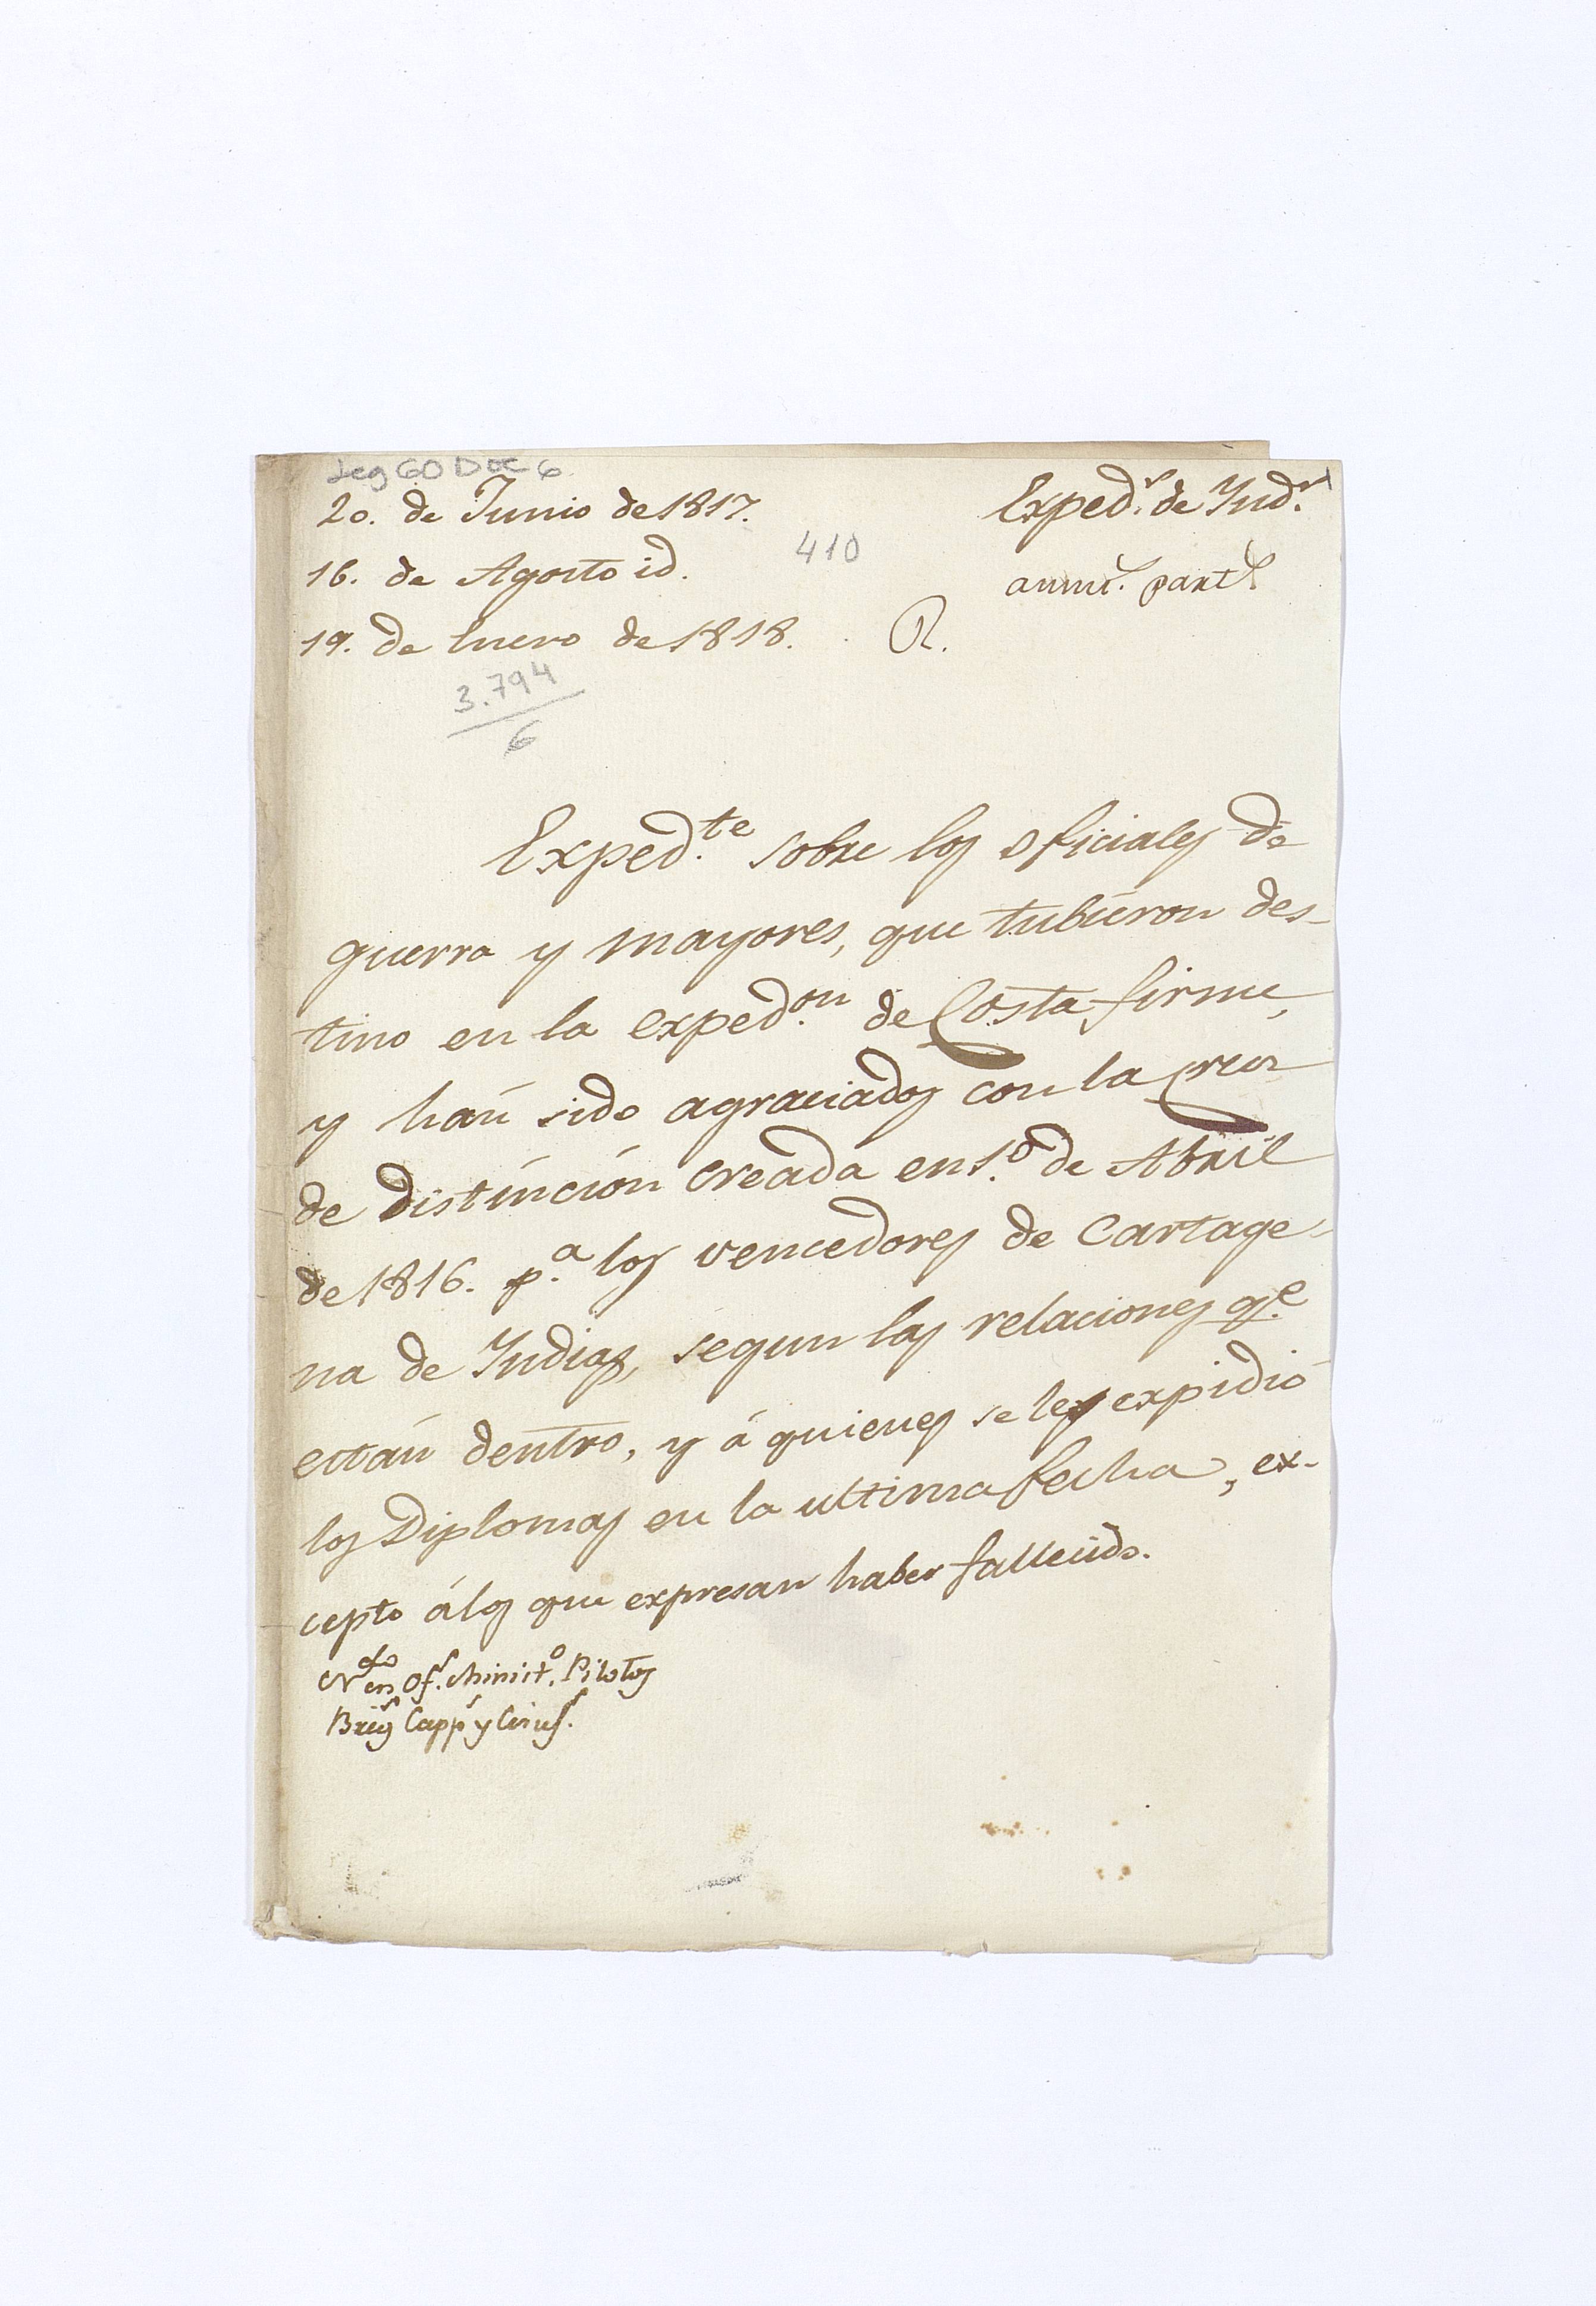 Leg 60 Doc 6
20. de Junio de 1817.
Exped.s de Ind.s
16. de Agosto id.
410
asunt.s part.s
19. de Enero de 1818.
R.
3.794
6
Exped.te sobre los oficiales de
guerra y mayores, que tubieron des-
tino en la exped.on de Costa firme,
y han sido agraciados con la cruz
de distincion creada en 1.o de Abril
de 1816. p.a los vencedores de Cartage-
na de Indias, segun las relaciones q.e
están dentro, y á quienes se les expidió
los Diplomas en la ultima fecha, ex-
cepto á los que expresan haber fallecido.
en Of.s Minist.o Pilotos
Brig.s Capp.s y Ciruj.s